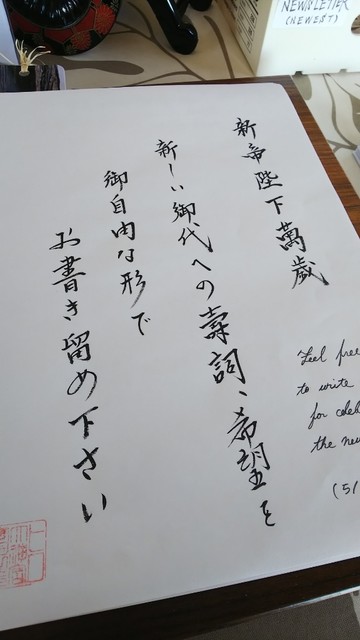 新帝陛下萬歳
新しい御代への壽詞、希望を
御自由な形で
お書き留め下さい
Feel free
to write
for celeb
the new
(5/
NEWSLETTER
(NEWEST)